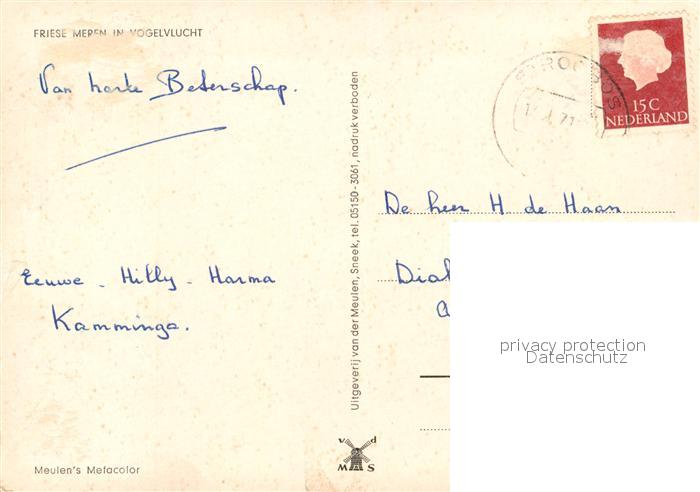 FRIESE MEREN IN VOGELVLUCHT
Van harte Beterschap.
Eeuwe - Hilly - Harma
Kamminga.
Meulen's Metacolor
Uitgeverij van der Meulen, Sneek, tel. 05150-3061, nadruk verboden
v d
M S
STROOBOS
71
15 C
NEDERLAND
De heer H. de Haan
privacy protection
Datenschutz